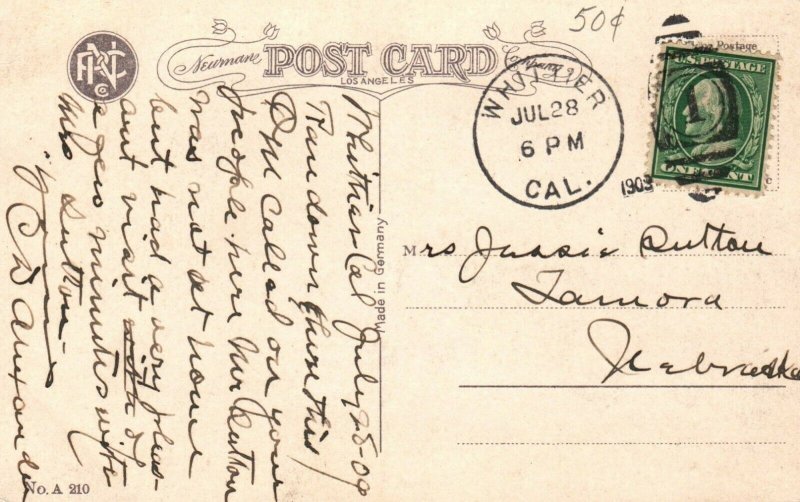 50¢
Newman POST CARD Company
LOS ANGELES
PNC Co
WHITTIER
JUL 28
6 PM
CAL.
1909
U.S. POSTAGE
1
ONE CENT
Postage
Made in Germany
Mrs Jessie Sutton
Tamora
Nebraska
Whittier Cal July 28-09
I ran down here this
P.M. called on your
people here Mr Sutton
was not at home
but had a very pleas-
ant visit with of
a few minutes with
Mrs Sutton.
Y C D Alexander
No. A 210